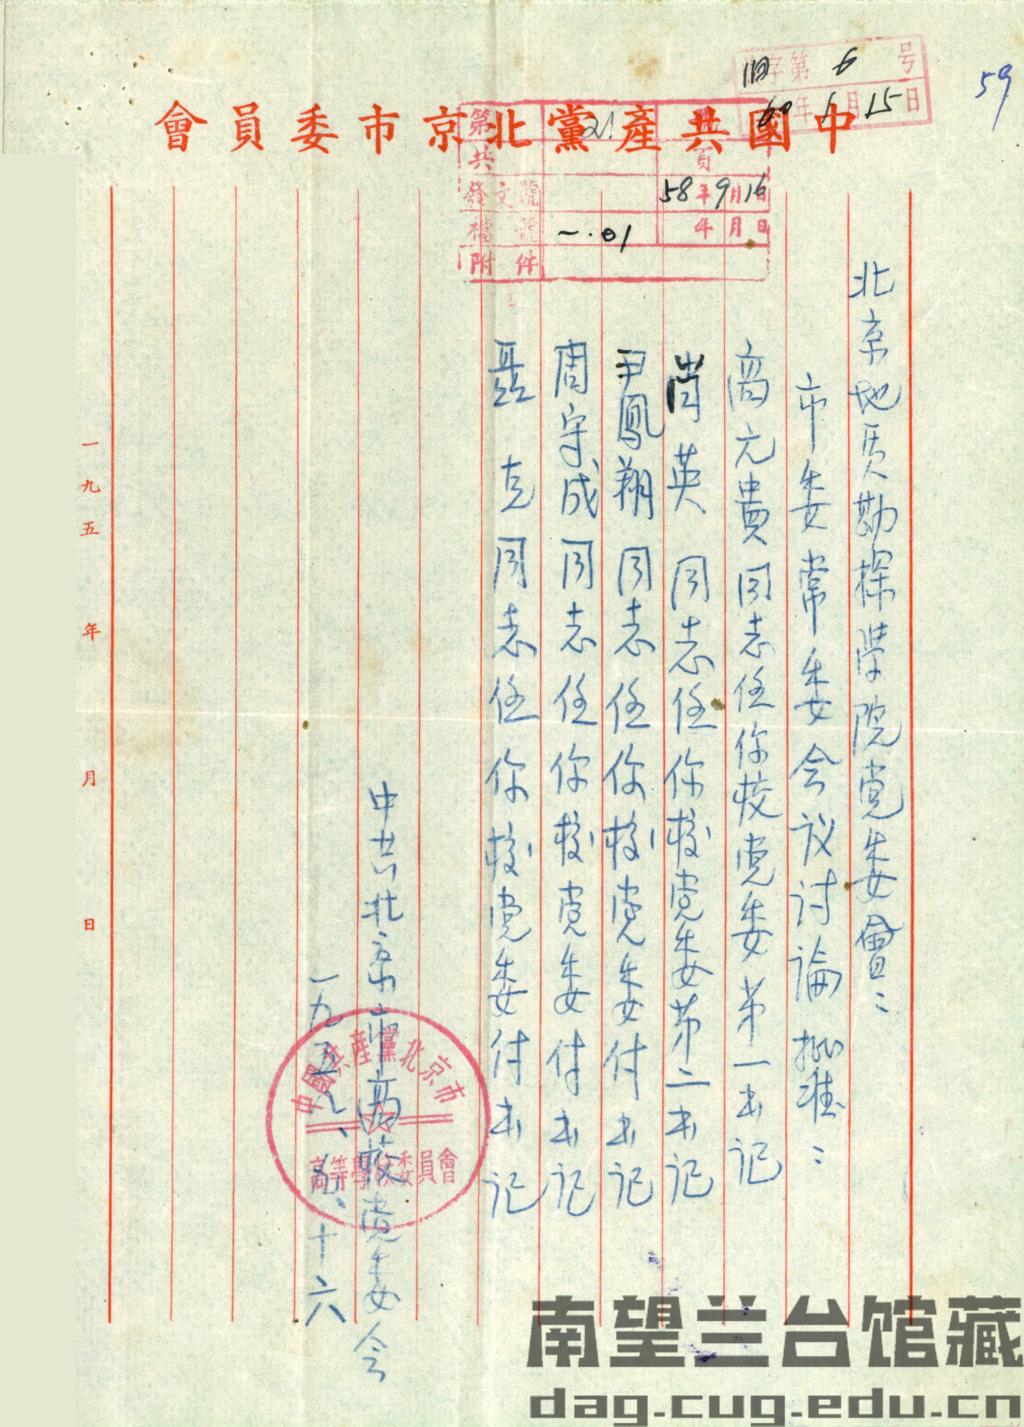 59
旧字第6号
60年1月15日
中國共產黨北京市委員會
第21
共 頁
發文號 58年9月16日
檔號 一.01 年月日
附件
北京地质勘探学院党委會：
市委常委会议讨論批准：
高元貴同志任你校党委第一书记
肖英同志任你校党委第二书记
尹鳳翔同志任你校党委付书记
周守成同志任你校党委付书记
聂克同志任你校党委付书记
中共北京市高校党委会
一九五八、九、十六
中國共產黨北京市
高等學校委員會
一九五年月日
南望兰台馆藏
dag.cug.edu.cn